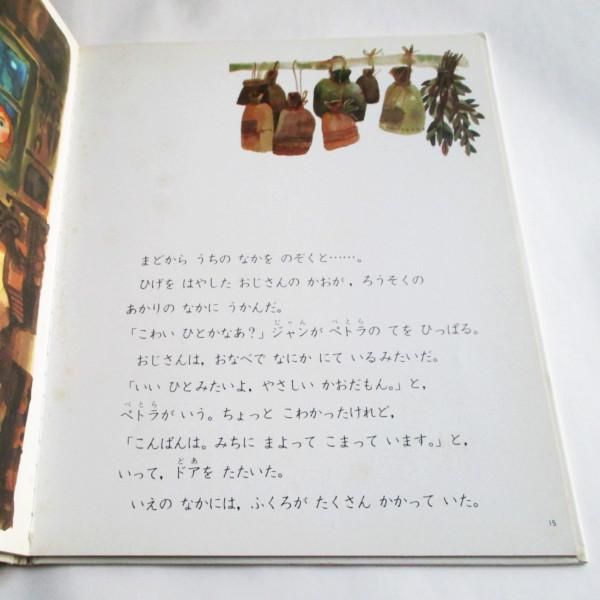 まどから うちの なかを のぞくと……。
ひげを はやした おじさんの かおが，ろうそくの
あかりの なかに うかんだ。
じゃん ぺとら
「こわい ひとかなあ？」ジャンが ペトラの てを ひっぱる。
おじさんは，おなべで なにか にて いるみたいだ。
「いい ひとみたいよ，やさしい かおだもん。」と，
ぺとら
ペトラが いう。ちょっと こわかったけれど，
「こんばんは。みちに まよって こまって います。」と，
どあ
いって，ドアを たたいた。
いえの なかには，ふくろが たくさん かかって いた。
15